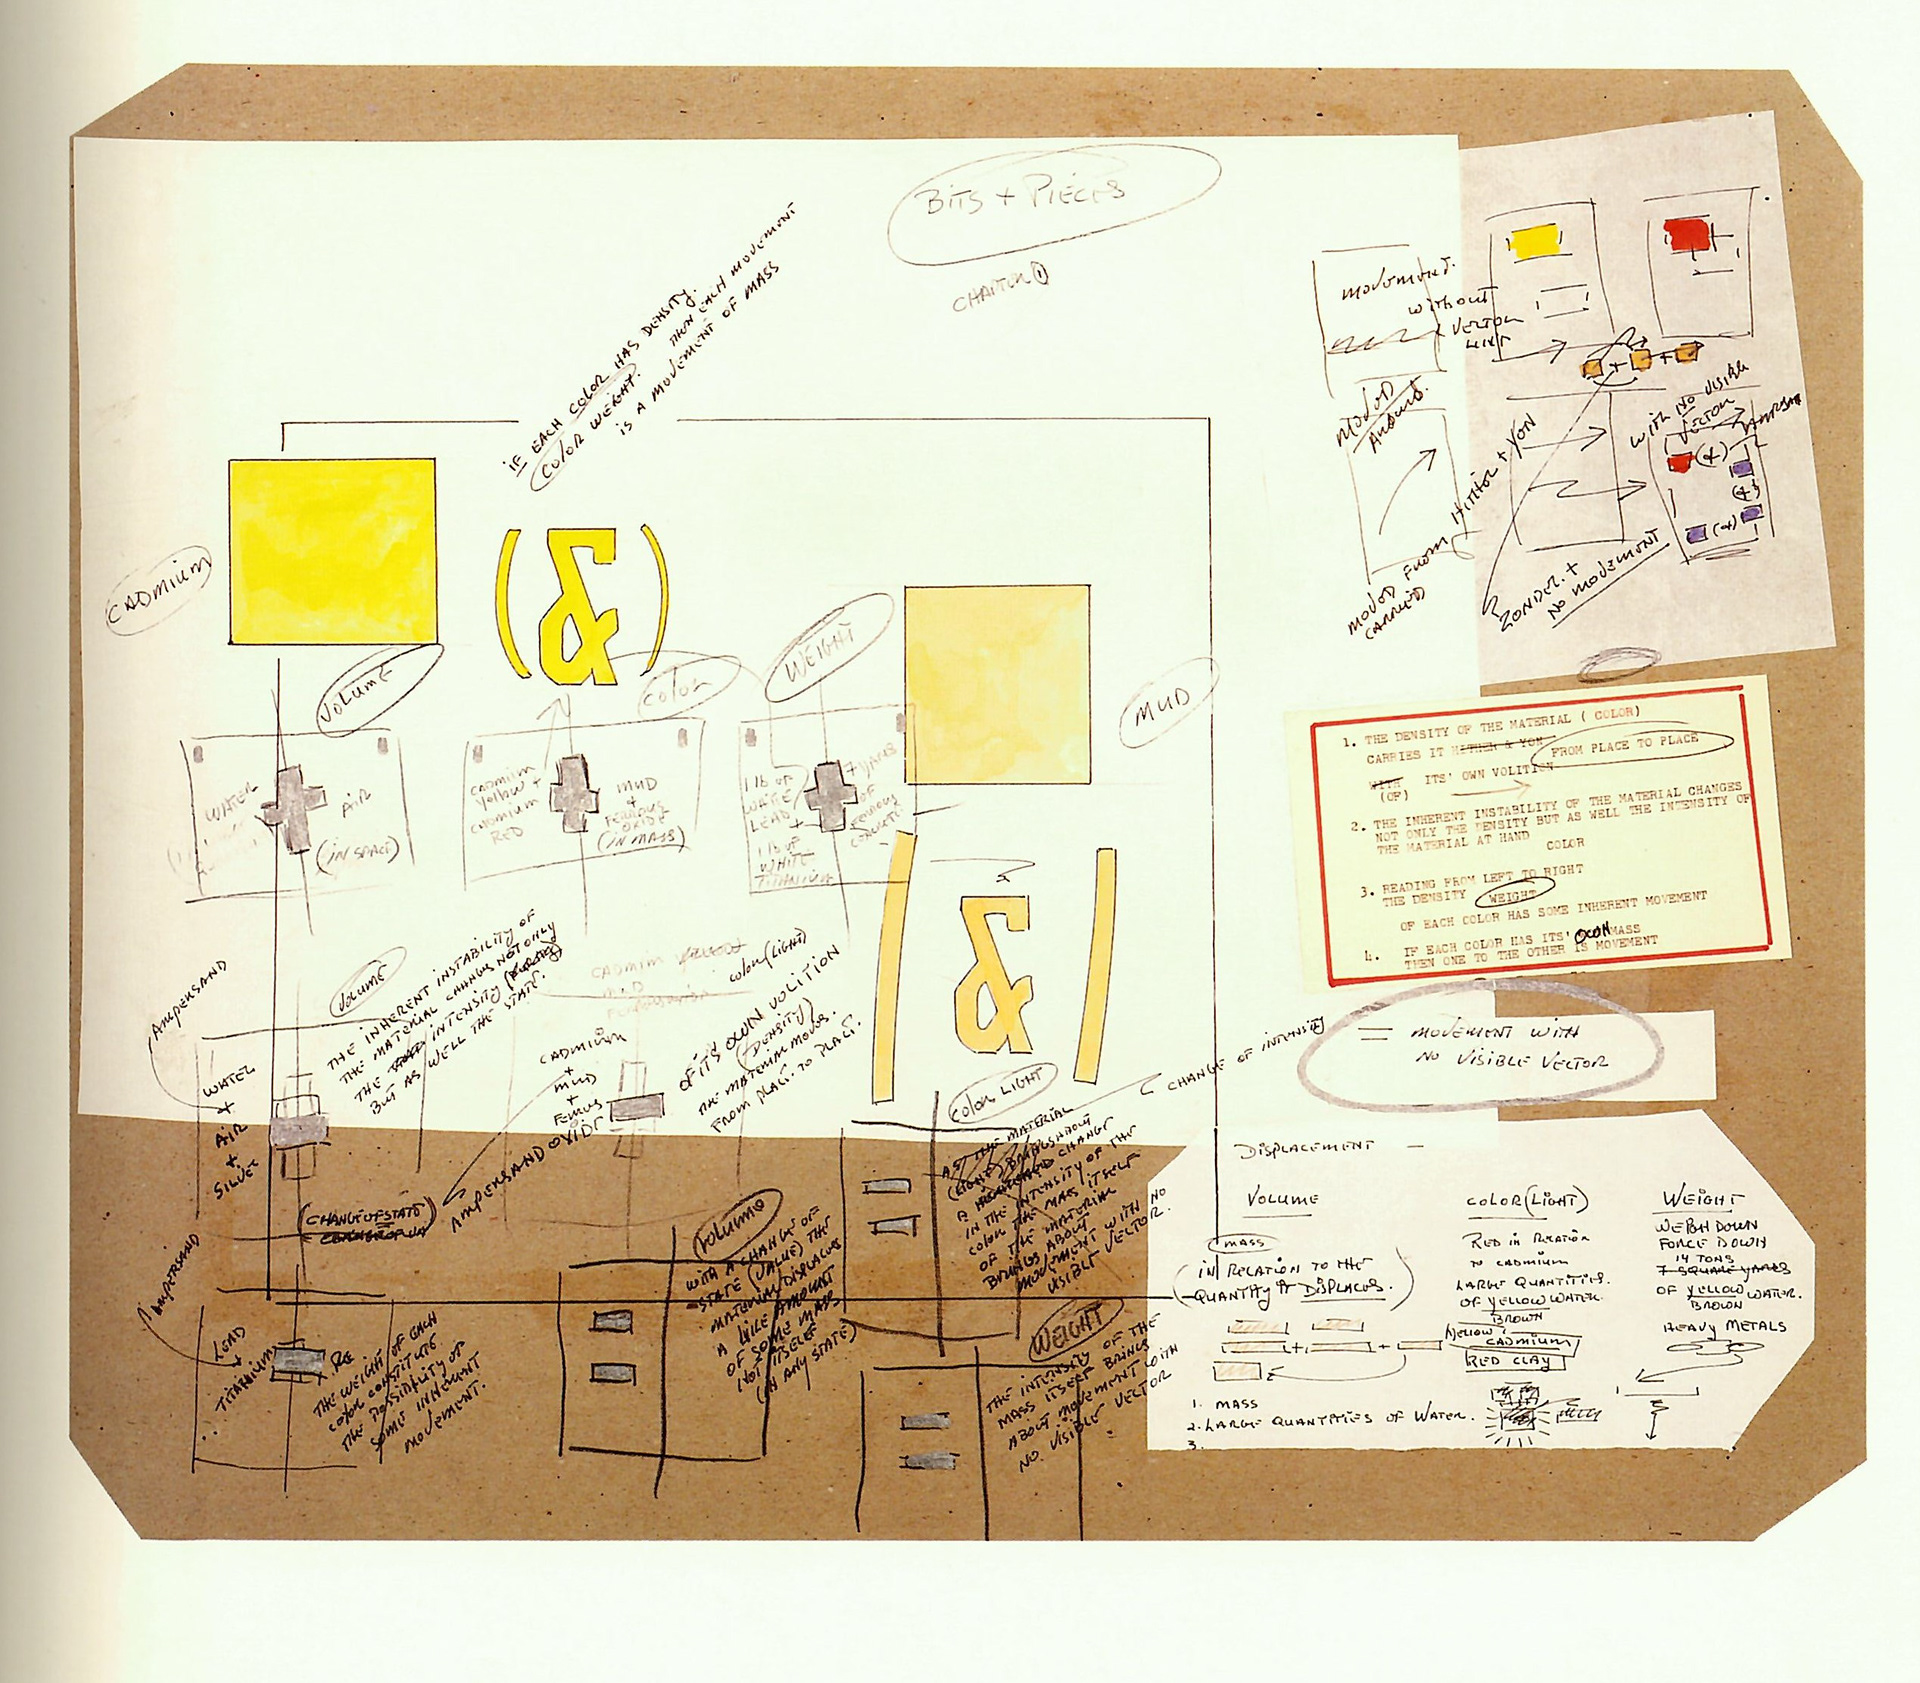 BITS + PIECES
CHAPTER 1
IF EACH COLOR HAS DENSITY.
COLOR WEIGHT. THEN EACH MOVEMENT
IS A MOVEMENT OF MASS
CADMIUM
(&)
MUD
VOLUME
COLOR
WEIGHT
WATER
AIR
(IN SPACE)
CADMIUM
YELLOW +
CADMIUM
RED
MUD
+
FERROUS
OXIDE
(IN MASS)
1 LB OF
WHITE
LEAD
+
1 LB OF
WHITE
TITANIUM
7 YARDS
OF
FERROUS
CONCRETE
(&)
AMPERSAND
WATER
+
AIR
+
SILVER
VOLUME
THE INHERENT INSTABILITY OF
THE MATERIAL CHANGES NOT ONLY
THE INTENSITY
BUT AS WELL THE STATE.
(CHANGE OF STATE)
CADMIUM
+
MUD
+
FERROUS
OXIDE
AMPERSAND
COLOR (LIGHT)
OF ITS OWN VOLITION
(DENSITY)
THE MATERIAL MOVES.
FROM PLACE TO PLACE.
AMPERSAND
LEAD
+
TITANIUM
THE WEIGHT OF EACH
COLOR CONSTITUTE
THE POSSIBILITY OF
SOME INHERENT
MOVEMENT.
VOLUME
WITH A CHANGE OF
STATE (VALUE) THE
MATERIAL DISPLACES
A LIKE AMOUNT
OF SOME MASS
NOT ITSELF
(IN ANY STATE)
COLOR LIGHT
AS THE MATERIAL
(LIGHT) BRINGS ABOUT
A CHANGE
IN THE INTENSITY OF THE
COLOR THE MASS ITSELF
OF THE MATERIAL
BRINGS ABOUT
MOVEMENT WITH NO
VISIBLE VECTOR.
CHANGE OF INTENSITY
WEIGHT
THE INTENSITY OF THE
MASS ITSELF BRINGS
ABOUT MOVEMENT WITH
NO VISIBLE VECTOR
MOVEMENT.
WITHOUT
VECTOR
MOVED
AROUND.
MOVED FROM HITHER + YON
CARRIED
WITH NO VISIBLE
VECTOR
ZONDER. +
NO MOVEMENT
1. THE DENSITY OF THE MATERIAL ( COLOR)
CARRIES IT HITHER & YON FROM PLACE TO PLACE
WITH ITS' OWN VOLITION
(OF)
2. THE INHERENT INSTABILITY OF THE MATERIAL CHANGES
NOT ONLY THE DENSITY BUT AS WELL THE INTENSITY OF
THE MATERIAL AT HAND
COLOR
3. READING FROM LEFT TO RIGHT
THE DENSITY WEIGHT
OF EACH COLOR HAS SOME INHERENT MOVEMENT
4. IF EACH COLOR HAS ITS' OWN MASS
THEN ONE TO THE OTHER IS MOVEMENT
= MOVEMENT WITH
NO VISIBLE VECTOR
DISPLACEMENT —
VOLUME
MASS
(IN RELATION TO THE
QUANTITY IT DISPLACES.)
COLOR (LIGHT)
RED IN RELATION
TO CADMIUM
LARGE QUANTITIES.
OF YELLOW WATER.
BROWN
YELLOW
CADMIUM
RED CLAY
WEIGHT
WEIGH DOWN
FORCE DOWN
14 TONS
7 SQUARE YARDS
OF YELLOW WATER.
BROWN
HEAVY METALS
1. MASS
2. LARGE QUANTITIES OF WATER.
3.